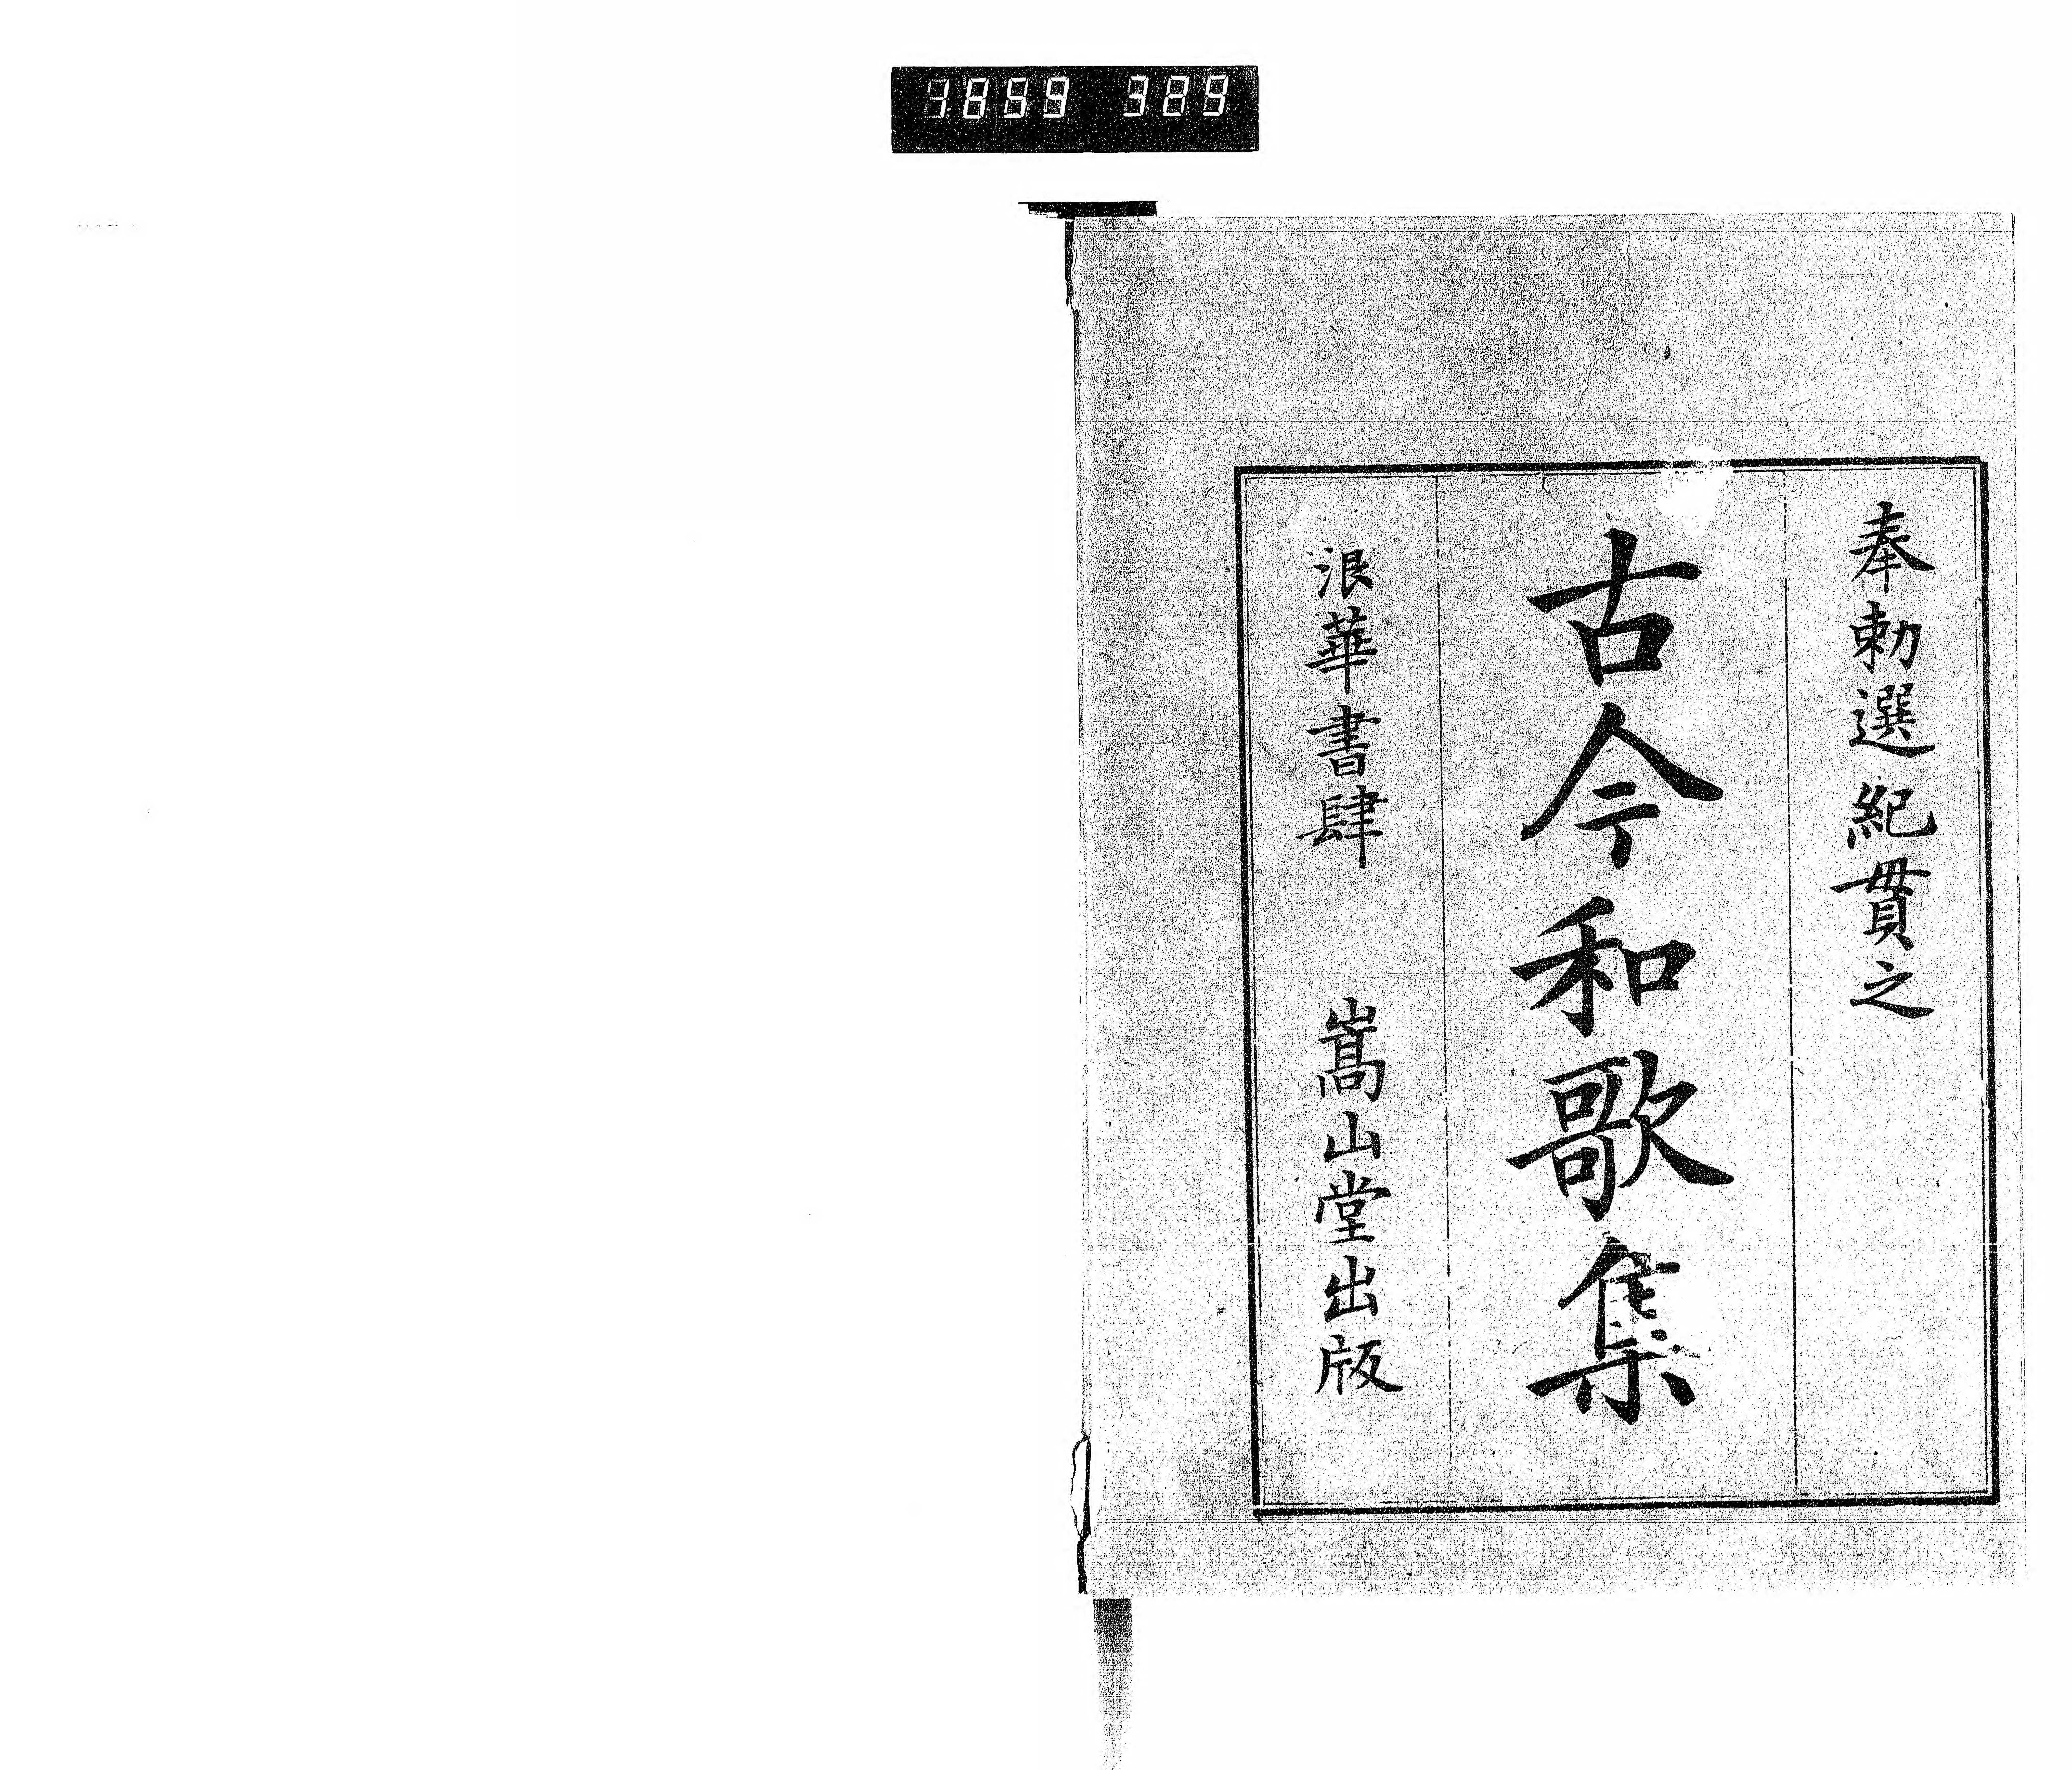 1859 329
奉勅選紀貫之
古今和歌集
浪華書肆 嵩山堂出版